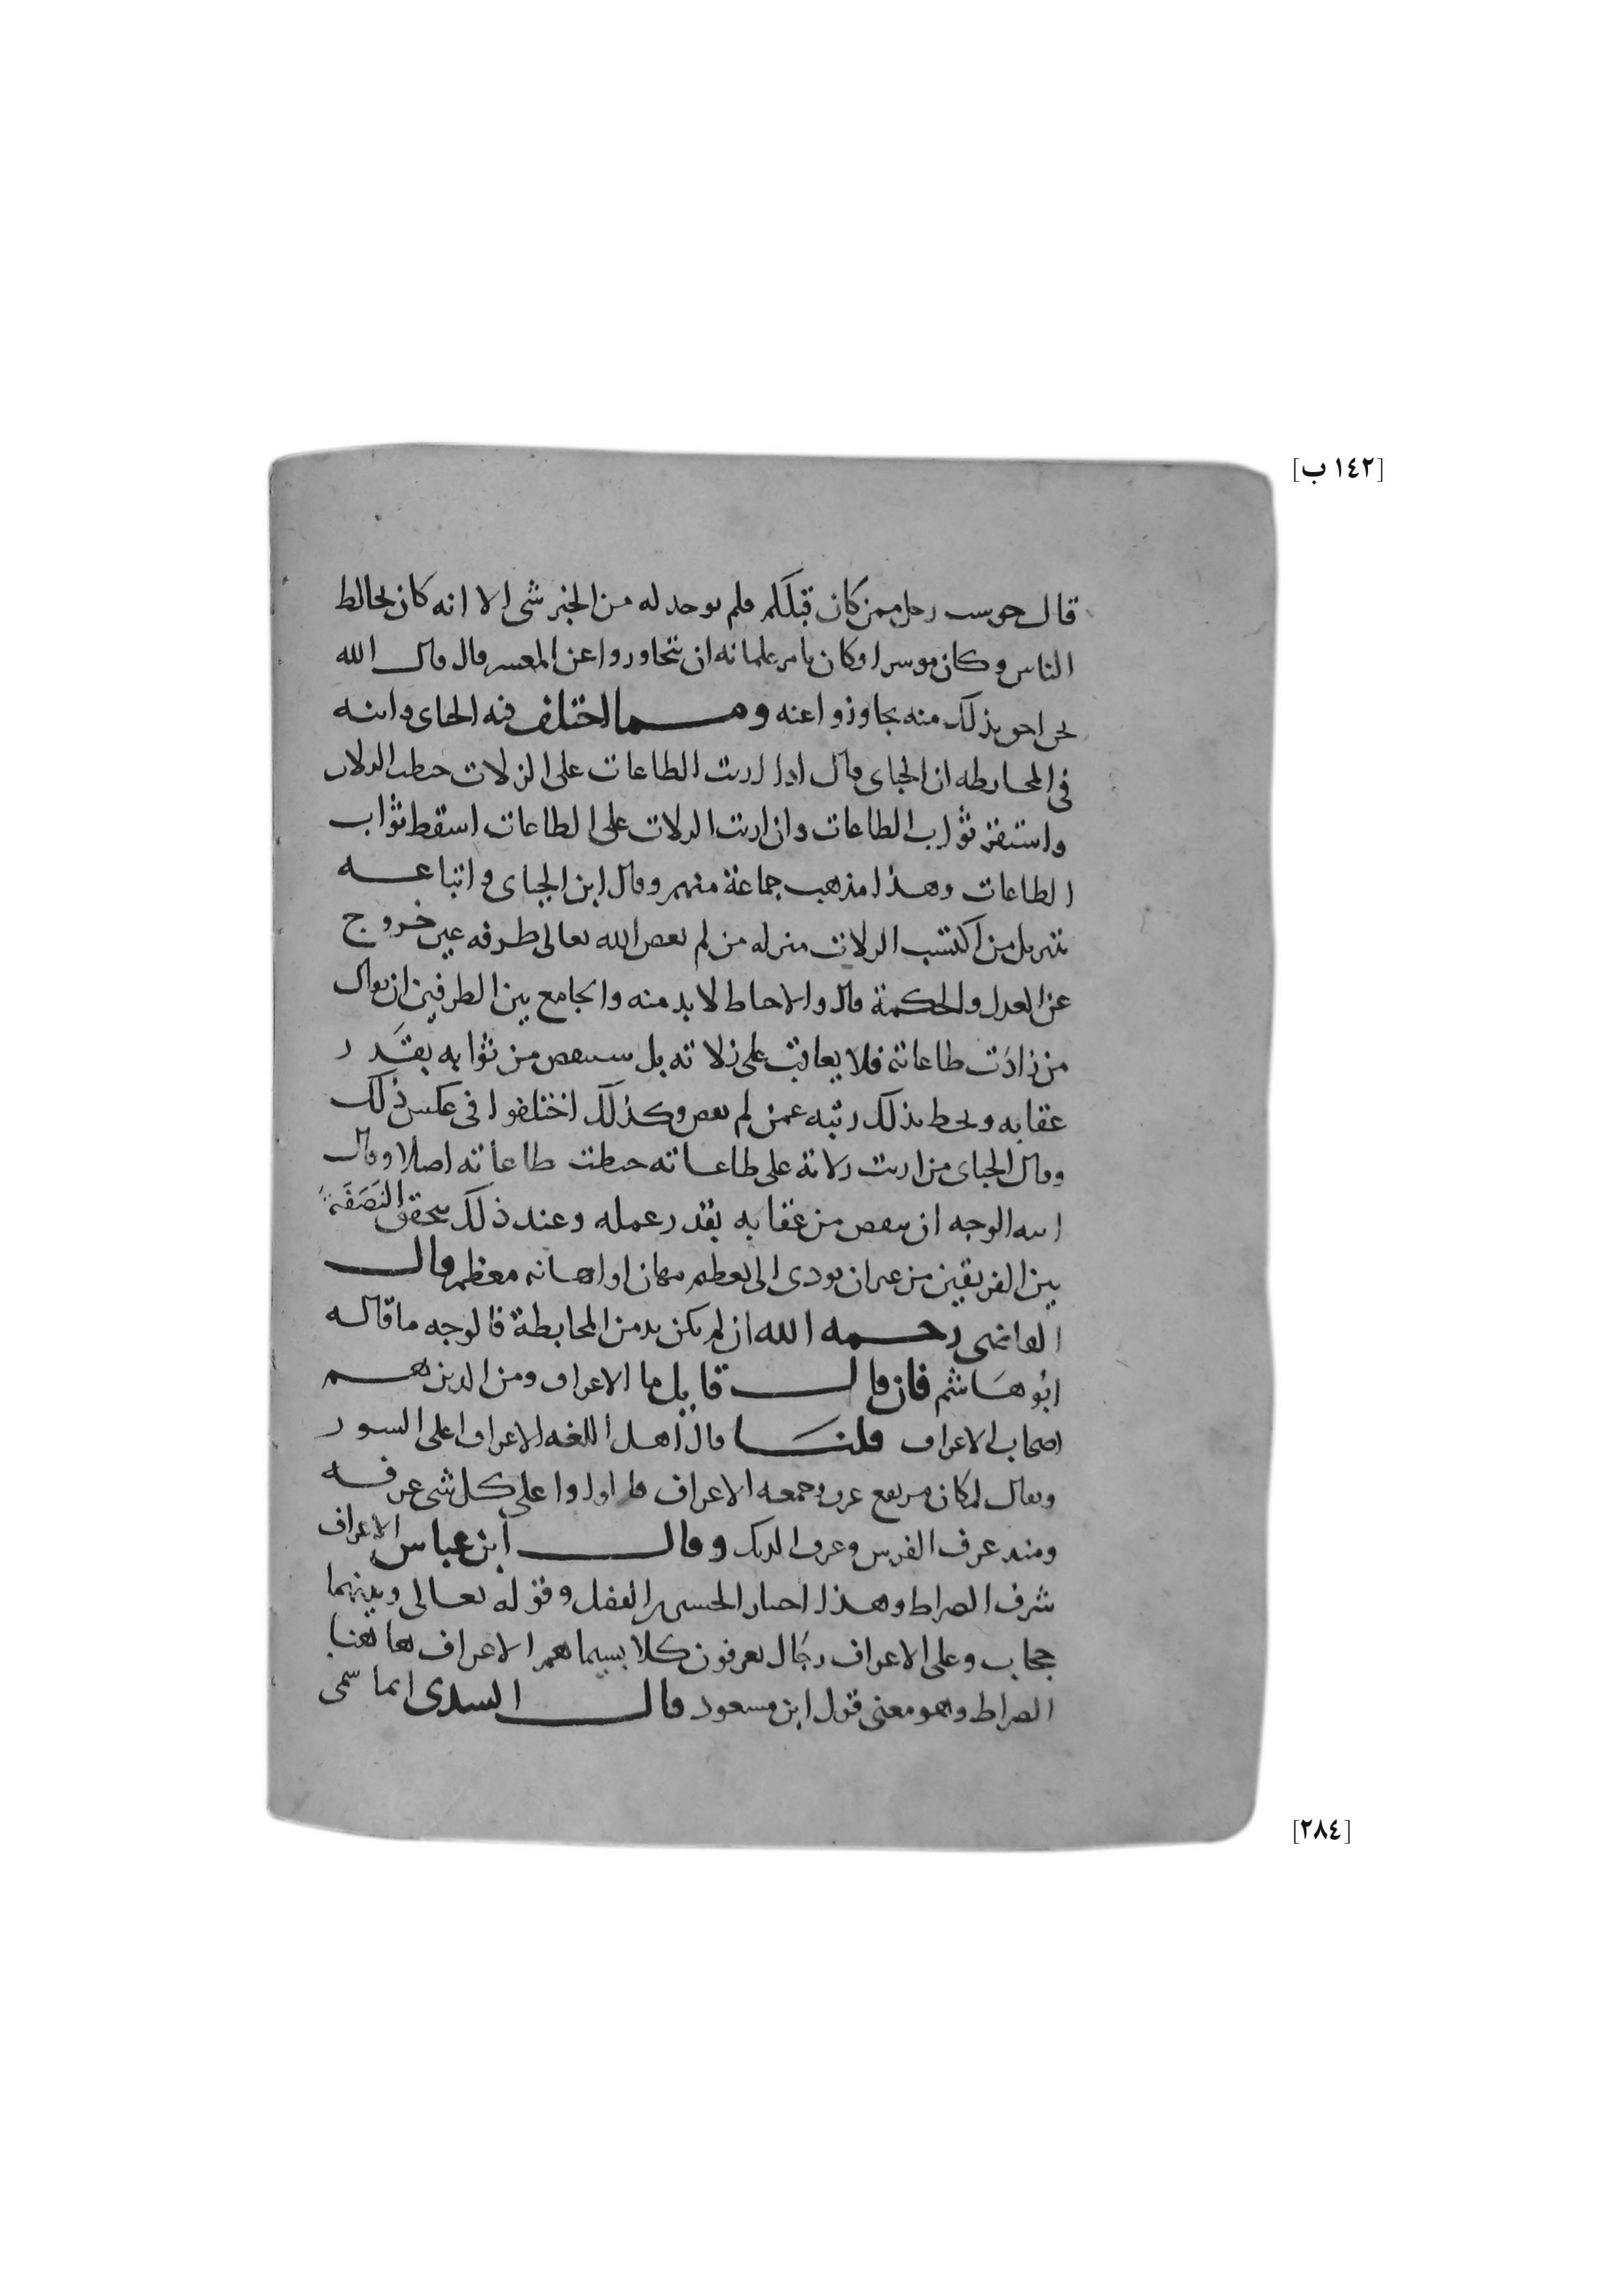 [١٤٢ ب]
قال حوسب رجل ممن كان قبلكم فلم يوجد له من الخير شى الا انه كان يخالط
الناس وكان موسرا وكان يامر غلمانه ان يتجاوزوا عن المعسر قال قال الله
نحن احق بذلك منه تجاوزوا عنه ومما اختلف فيه الجباى وابنه
فى المحابطه ان الجباى قال اذا اربت الطاعات على الزلات حبطت الزلات
واستقر ثواب الطاعات وان اربت الزلات على الطاعات اسقط ثواب
الطاعات وهذا مذهب جماعة منهم وقال ابن الجباى واتباعه
تنزيل من اكتسب الزلات منزله من لم يعص الله تعالى طرفه عين خروج
عن العدل والحكمة قال والاحباط لا بد منه والجامع بين الطرفين ان يقال
من زادت طاعاته فلا يعاقب على زلاته بل ينقص من ثوابه بقدر
عقابه ويحط بذلك رتبه عمن لم يعص وكذلك اختلفوا فى عكس ذلك
وقال الجباى من اربت زلاته على طاعاته حبطت طاعاته اصلا وقال
ابنه الوجه ان ينقص من عقابه بقدر عمله وعند ذلك يتحقق النصفة
بين الفريقين من غير ان يودى الى تعظيم مهان او اهانه معظم قال
القاضى رحمه الله ان لم يكن بد من المحابطة فالوجه ما قاله
ابو هاشم فان قال قايل ما الاعراف ومن الذين هم
اصحاب الاعراف قلنا قال اهل اللغه الاعراف اعلى السور
ويقال لمكان مرتفع عرف وجمعه الاعراف على كل شى عرفه
ومنه عرف الفرس وعرف الديك وقال ابن عباس الاعراف
شرف الصراط وهذا اختيار الحسين الفضل وقوله تعالى وبينهما
حجاب وعلى الاعراف رجال يعرفون كلا بسيماهم الاعراف هاهنا
الصراط وهو معنى قول ابن مسعود قال السدى انما سمى
[٢٨٤]